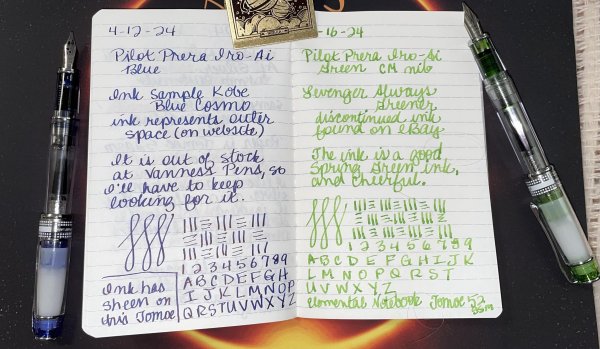 4-12-24
Pilot Prera Iro-Ai
Blue
Ink Sample Kobe
Blue Cosmo
ink represents outer
space (on website)
It is out of stock
at Vanness Pens, so
I'll have to keep
looking for it.
1 2 3 4 5 6 7 8 9
A B C D E F G H
I J K L M N O P
Q R S T U V W X Y Z
Ink has
sheen on
this Tomoe
16-24
Pilot Prera Iro-Ai
Green CM nib
Levenger Always
Greener
discontinued ink
found on eBay
The ink is a good
Spring Green ink,
and cheerful.
1 2 3 4 5 6 7 8 9
A B C D E F G H I J K
L M N O P Q R S T
U V W X Y Z
Elemental Notebook Tomoe 52
gsm